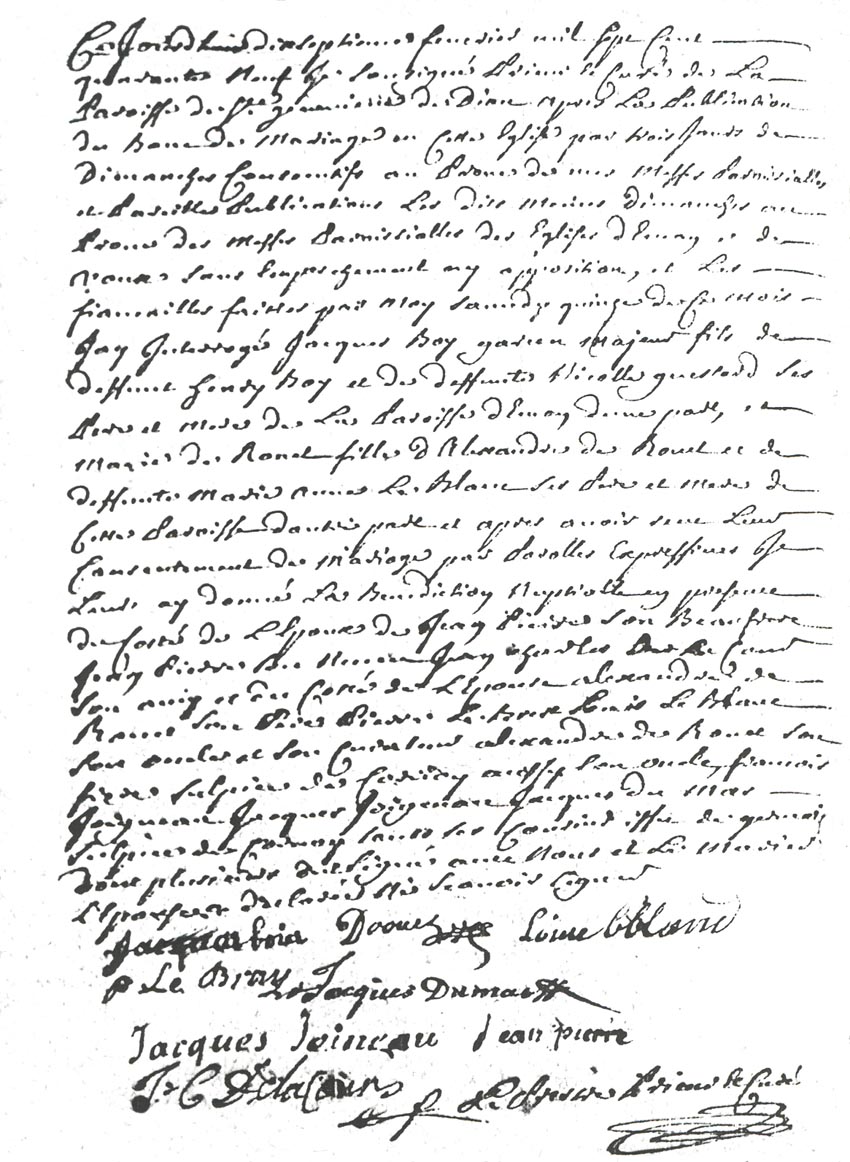 Ce Jourdhuy dixseptieme feuvrier mil sept Cent
quarante Neuf Je Soussigné Prieur et Curé de La
Paroisse de Ste genevieve de Dième apres La Publication
du Banc de Mariage en Cette Eglise par trois Jours de
Dimanches Consecutifs au Prone de nos Messes Paroissialles
et Pareilles Publications Les dits Mesmes dimanches au
Prone des Messes Paroissialles des Eglises d'Ennay et de
sans Empeschement ny opposition, et Les
fiancailles faittes par Moy Samedy quinze de Ce Mois
Jay Interrogé Jacques Boy garcon Majeur fils de
deffunt henry Boy et de deffunte Nicolle questard Ses
Pere et Mere de La Paroisse d'Ennay d'une part, et
Marie de Rouet fille d'Alexandre de Rouet et de
deffunte Marie Anne Le Blanc Ses Pere et Mere de
Cette Paroisse dautre part et apres avoir receu Leur
Consentement de Mariage par Parolles Expressives Je
Leur ay donné La Benediction Nuptialle en presence
du Costé de L'Epoux de Jean Pierre Son Beaufrere
Jean Pierre Jean Charles de La Cour
Son amy et du Costé de L'Epouse alexandre de
Rouet Son Pere Pierre Le Brest Louis Le Blanc
Son oncle et Son Curateur alexandre de Rouet Son
frere Sulpice de aussy Son oncle, francois
Joigneau Jacques Joigneau Jacques du Mas
Sulpice de touts Ses Cousins issu de germain
dont plusieurs ont Signé avec Nous et Le Marié
L'Epouse a declaré Ne Scavoir Signer
Derouet Louis leblanc
p Le Brest Jacques Dumas
Jacques Joineau Jean pierre
J. C Delacour
Prieur et Curé